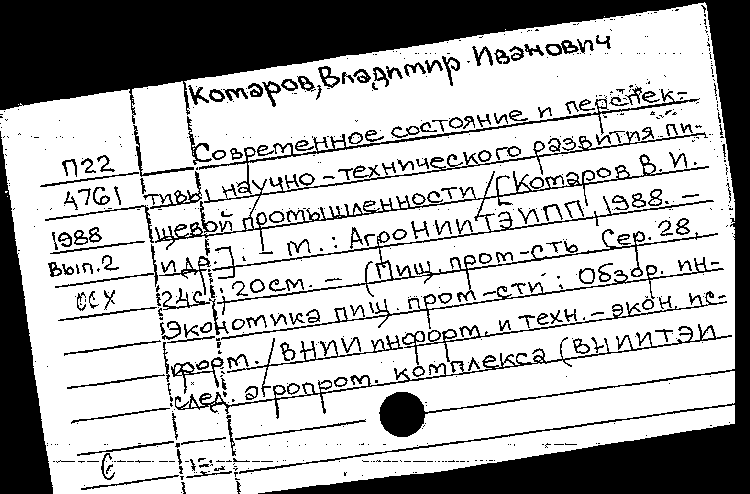 Комаров, Владимир Иванович
Современное состояние и перспек-
П22
4761 тивы научно-технического развития пи-
1988 щевой промышленности / [Комаров В. И.
Вып.2 и др.]. - М.: АгроНИИТЭИПП, 1988. -
ОСХ 24с.; 20см. - (Пищ. пром-сть. Сер. 28,
Экономика пищ. пром-сти: Обзор. ин-
форм. / ВНИИ информ. и техн.-экон. ис-
след. агропром. комплекса (ВНИИТЭИ
б